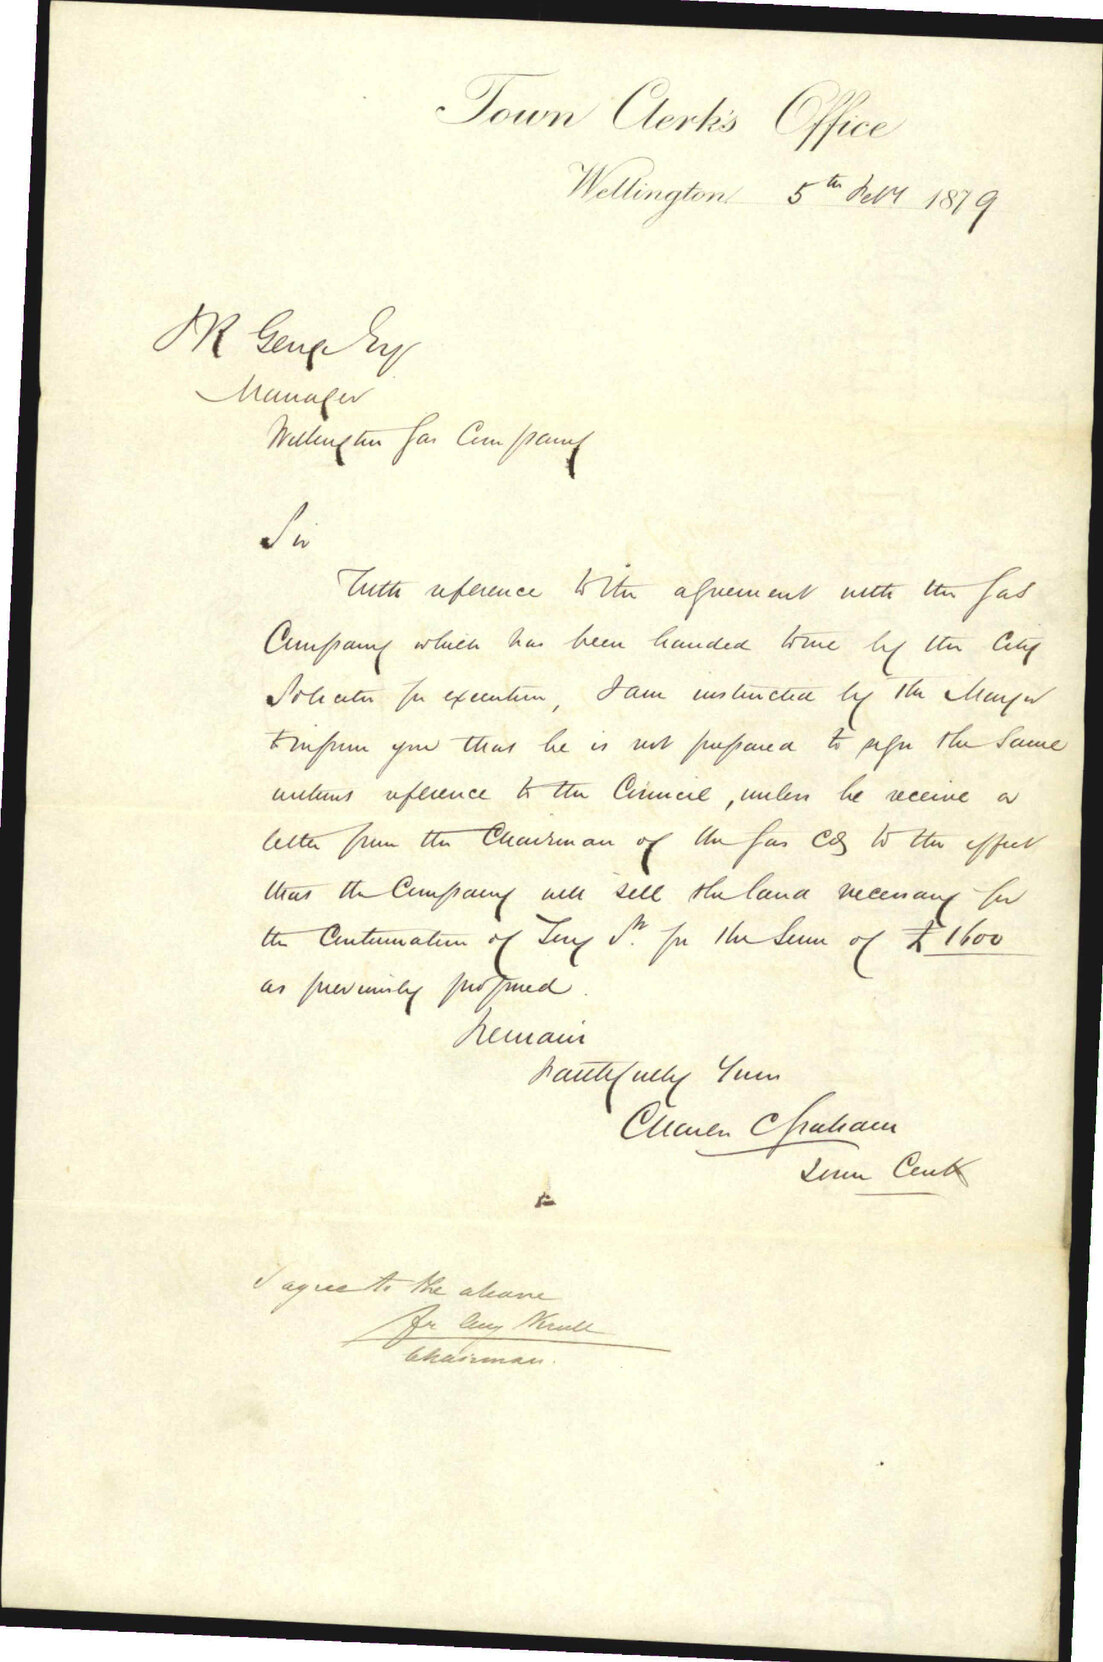 Town Clerk's Office
Wellington 5th Feby 1879
J R George Esq
Manager
Wellington Gas Company
Sir
With reference to the agreement with the Gas
Company which has been handed to me by the City
Solicitor for execution, I am instructed by the Mayor
to inform you that he is not prepared to sign the same
without reference to the Council, unless he receive a
letter from the Chairman of the Gas Coy to the effect
that the Company will sell the land necessary for
the Continuation of Tory St. for the Sum of £1600
as previously proposed.
Remain
Faithfully Yours
Charles C Graham
Town Clerk
I agree to the above
Fr Aug Krull
Chairman.